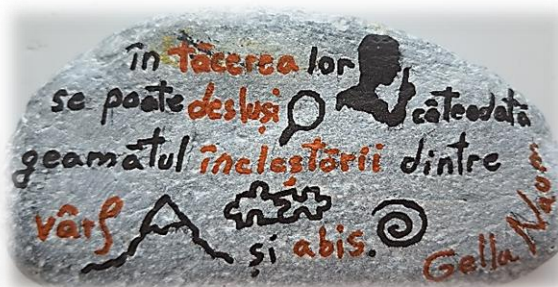 în tăcerea lor
se poate desluși câteodată
geamătul încleștării dintre
vârf și abis.
Gellu Naum